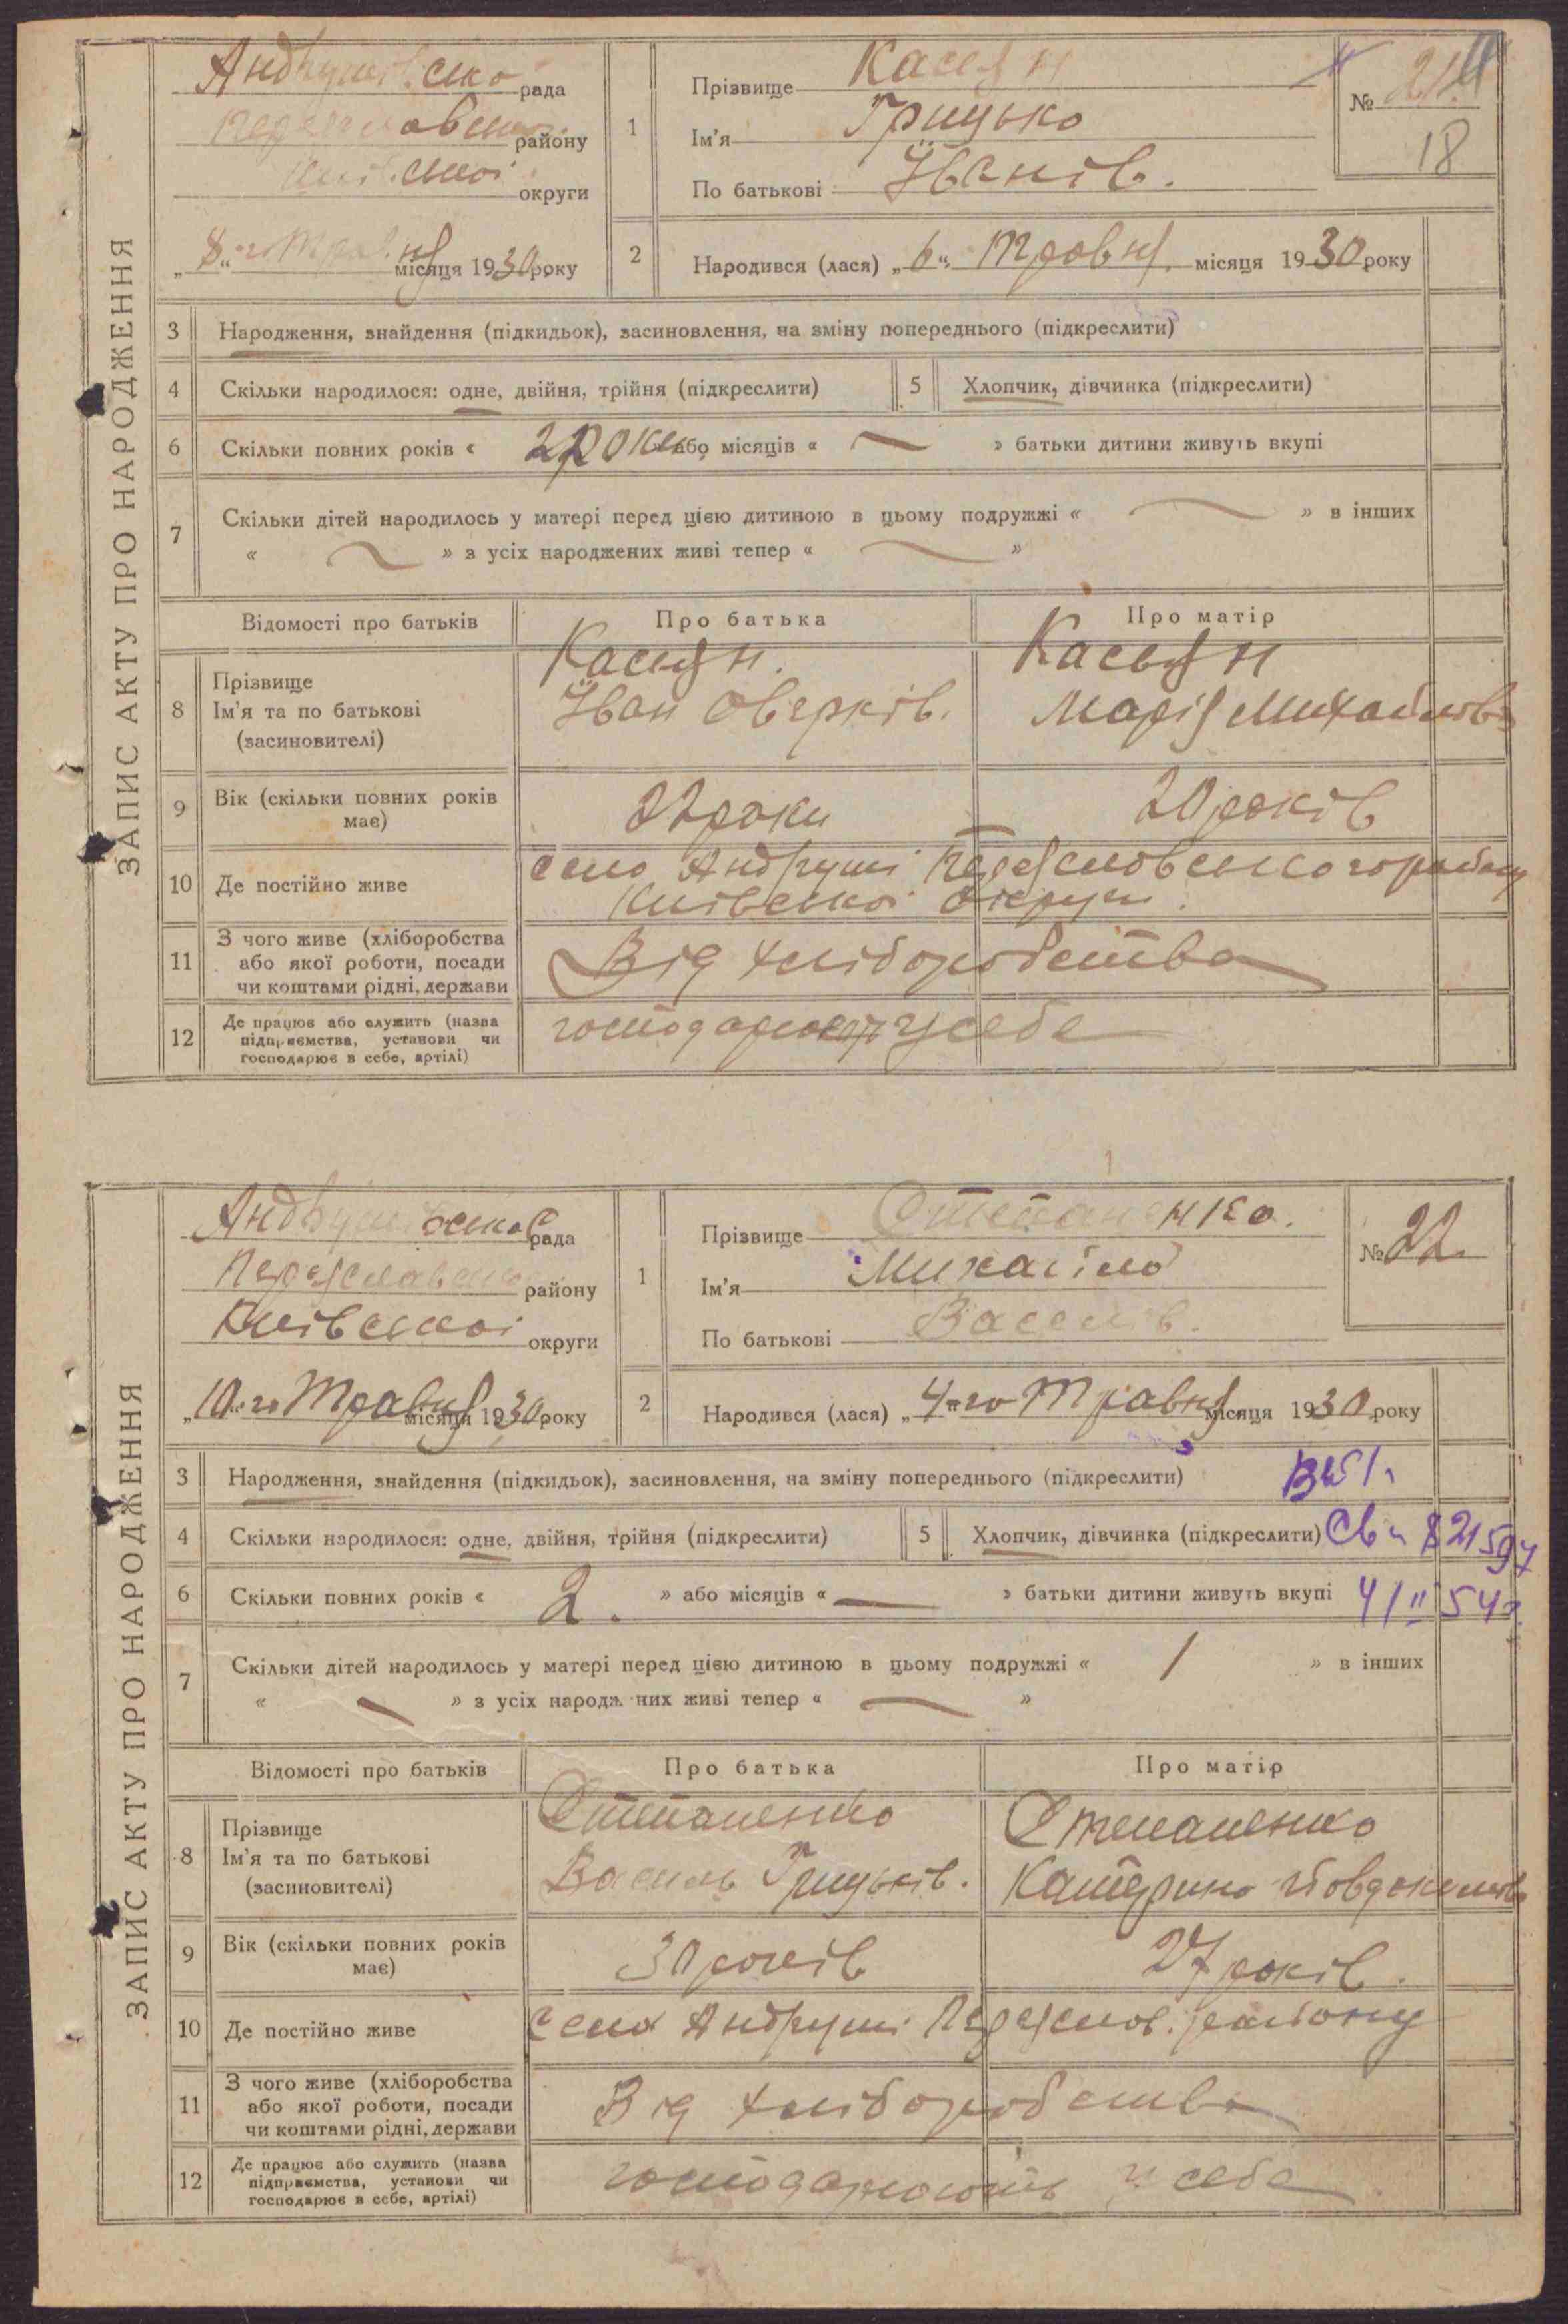 ЗАПИС АКТУ ПРО НАРОДЖЕННЯ
Андрушівсько рада
Переяславсько району
Київської округи
„8“ го Травня місяця 1930 року
1
Прізвище Касян
Ім'я Грицько
По батькові Іванів.
№ 21
18
2
Народився (лася) „6“ Травня місяця 1930 року
3 Народження, знайдення (підкидьок), засиновлення, на зміну попереднього (підкреслити)
4 Скільки народилося: одне, двійня, трійня (підкреслити) 5 Хлопчик, дівчинка (підкреслити)
6 Скільки повних років « 2 роки » або місяців « — » батьки дитини живуть вкупі
7 Скільки дітей народилось у матері перед цією дитиною в цьому подружжі « — » в інших
« — » з усіх народжених живі тепер « — »
Відомості про батьків Про батька Про матір
8 Прізвище Ім'я та по батькові (засиновителі)
Касян. Касьян
Іван Оверків. Марія Михайлов
9 Вік (скільки повних років має) 22 роки 20 років
10 Де постійно живе село Андруші Переясловського району
Київської округи.
11 З чого живе (хліборобства або якої роботи, посади чи коштами рідні, держави Від хліборобства
12 Де працює або служить (назва підприємства, установи чи господарює в себе, артілі) господарюють у себе
ЗАПИС АКТУ ПРО НАРОДЖЕННЯ
Андрушівська рада
Переяславсько району
Київської округи
„10“ го Травня місяця 1930 року
1
Прізвище Степаненко.
Ім'я Михаіло
По батькові Василів.
№ 22.
2
Народився (лася) „4“ го Травня місяця 1930 року
3 Народження, знайдення (підкидьок), засиновлення, на зміну попереднього (підкреслити)
4 Скільки народилося: одне, двійня, трійня (підкреслити) 5 Хлопчик, дівчинка (підкреслити)
6 Скільки повних років « 2. » або місяців « — » батьки дитини живуть вкупі 4/II 54
7 Скільки дітей народилось у матері перед цією дитиною в цьому подружжі « 1 » в інших
« — » з усіх народж них живі тепер « — »
Відомості про батьків Про батька Про матір
8 Прізвище Ім'я та по батькові (засиновителі)
Степаненко Степаненко
Василь Грицьків. Катерина
9 Вік (скільки повних років має) 30 років 27 років.
10 Де постійно живе село Андруші Переяслов. району
11 З чого живе (хліборобства або якої роботи, посади чи коштами рідні, держави Від хліборобства
12 Де працює або служить (назва підприємства, установи чи господарює в себе, артілі) господарюють у себе